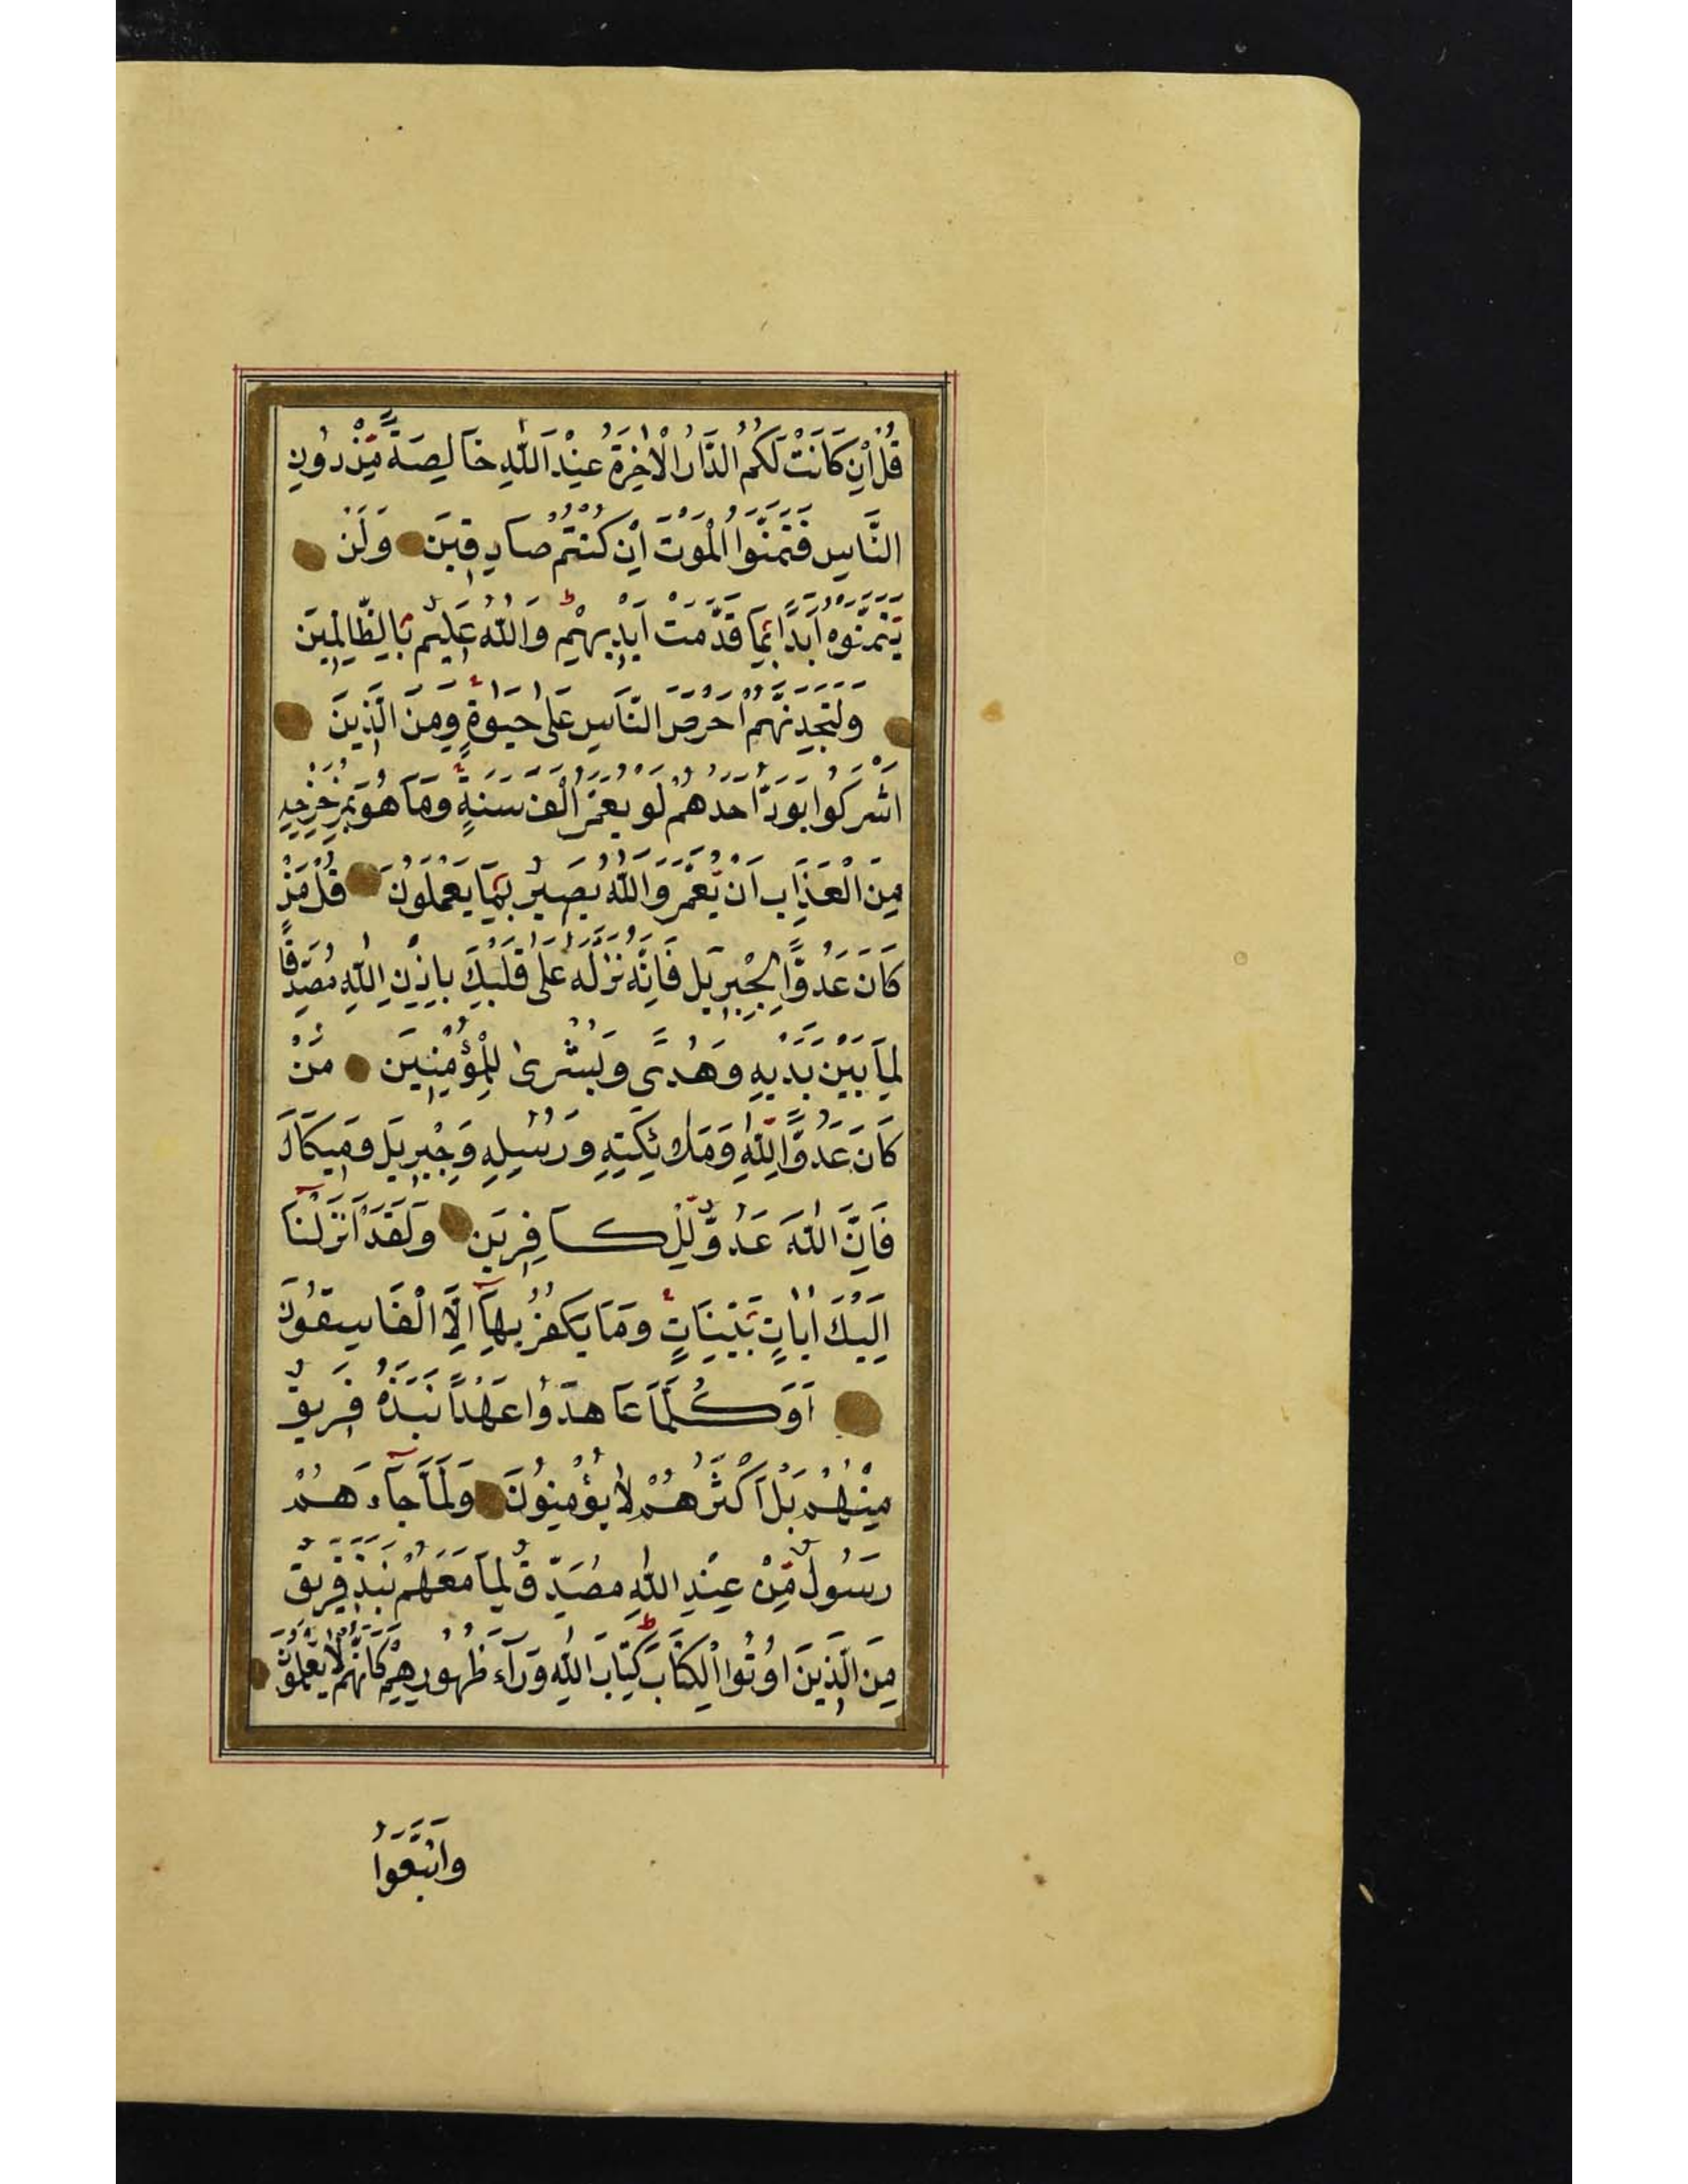 قُلْ اِنْ كَانَتْ لَكُمُ الدَّارُ الْاٰخِرَةُ عِنْدَ اللّٰهِ خَالِصَةً مِّنْ دُونِ
النَّاسِ فَتَمَنَّوُا الْمَوْتَ اِنْ كُنْتُمْ صَادِقِينَ وَلَنْ
يَتَمَنَّوْهُ اَبَدًا بِمَا قَدَّمَتْ اَيْدِيهِمْ وَاللّٰهُ عَلِيمٌ بِالظَّالِمِينَ
وَلَتَجِدَنَّهُمْ اَحْرَصَ النَّاسِ عَلٰى حَيٰوةٍ وَمِنَ الَّذِينَ
اَشْرَكُوا يَوَدُّ اَحَدُهُمْ لَوْ يُعَمَّرُ اَلْفَ سَنَةٍ وَمَا هُوَ بِمُزَحْزِحِهِ
مِنَ الْعَذَابِ اَنْ يُعَمَّرَ وَاللّٰهُ بَصِيرٌ بِمَا يَعْمَلُونَ قُلْ مَنْ
كَانَ عَدُوًّا لِجِبْرِيلَ فَاِنَّهُ نَزَّلَهُ عَلٰى قَلْبِكَ بِاِذْنِ اللّٰهِ مُصَدِّقًا
لِمَا بَيْنَ يَدَيْهِ وَهُدًى وَبُشْرٰى لِلْمُؤْمِنِينَ مَنْ
كَانَ عَدُوًّا لِلّٰهِ وَمَلٰئِكَتِهِ وَرُسُلِهِ وَجِبْرِيلَ وَمِيكَالَ
فَاِنَّ اللّٰهَ عَدُوٌّ لِّلْكَافِرِينَ وَلَقَدْ اَنْزَلْنَٓا
اِلَيْكَ اٰيَاتٍ بَيِّنَاتٍ وَمَا يَكْفُرُ بِهَٓا اِلَّا الْفَاسِقُونَ
اَوَكُلَّمَا عَاهَدُوا عَهْدًا نَبَذَهُ فَرِيقٌ
مِنْهُمْ بَلْ اَكْثَرُهُمْ لَا يُؤْمِنُونَ وَلَمَّا جَٓاءَهُمْ
رَسُولٌ مِّنْ عِنْدِ اللّٰهِ مُصَدِّقٌ لِمَا مَعَهُمْ نَبَذَ فَرِيقٌ
مِنَ الَّذِينَ اُوتُوا الْكِتَابَ كِتَابَ اللّٰهِ وَرَٓاءَ ظُهُورِهِمْ كَاَنَّهُمْ لَا يَعْلَمُونَ
وَاتَّبَعُوا